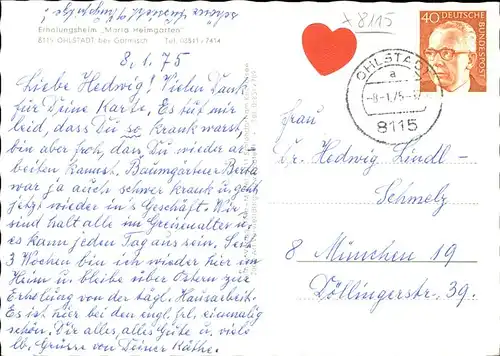 Erholungsheim "Maria Heimgarten"
8115 OHLSTADT bei Garmisch Tel. 08841-7414
+ 8115
40
DEUTSCHE
BUNDESPOST
OHLSTADT
a
-8-1.75-
8115
8.1.75
Liebe Hedwig! Vielen Dank
für Deine Karte. Es tut mir
leid, dass Du so krank warst,
bin aber froh, dass Du wieder ar-
beiten kannst. Baumgärtner Berta
war ja auch schwer krank u. geht
jetzt wieder in's Geschäft. Wir
sind halt alle im Greisenalter u.
es kann jeden Tag aus sein. Seit
3 Wochen bin ich wieder hier im
Heim u. bleibe über Ostern zur
Erholung von der tägl. Hausarbeit.
Es ist hier bei den engl. frl. einmalig
schön. Dir alles, alles Gute u. viele
lb. Grüsse von Deiner Käthe.
Frau
Dr. Hedwig Lindl-
Schmelz
8 München 19
Döllingerstr. 39.